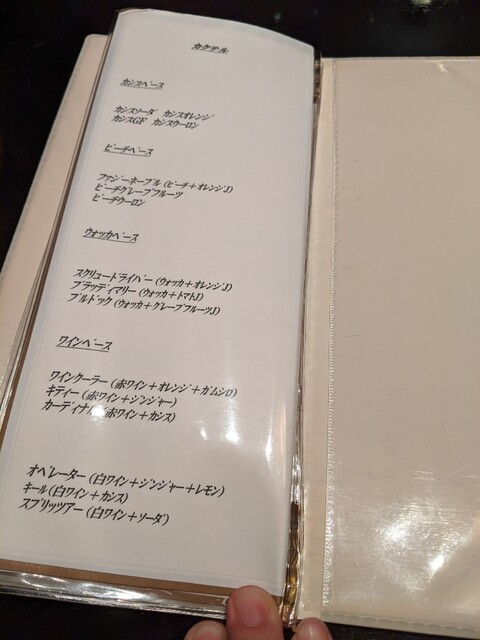 カクテル
カシスベース
カシスソーダ カシスオレンジ
カシスGF カシスウーロン
ピーチベース
ファジーネーブル(ピーチ+オレンジJ)
ピーチグレープフルーツ
ピーチウーロン
ウォッカベース
スクリュードライバー(ウォッカ+オレンジJ)
ブラッディマリー(ウォッカ+トマトJ)
ブルドック(ウォッカ+グレープフルーツJ)
ワインベース
ワインクーラー(赤ワイン+オレンジ+ガムシロ)
キティー(赤ワイン+ジンジャー)
カーディナル(赤ワイン+カシス)
オペレーター(白ワイン+ジンジャー+レモン)
キール(白ワイン+カシス)
スプリッツアー(白ワイン+ソーダ)